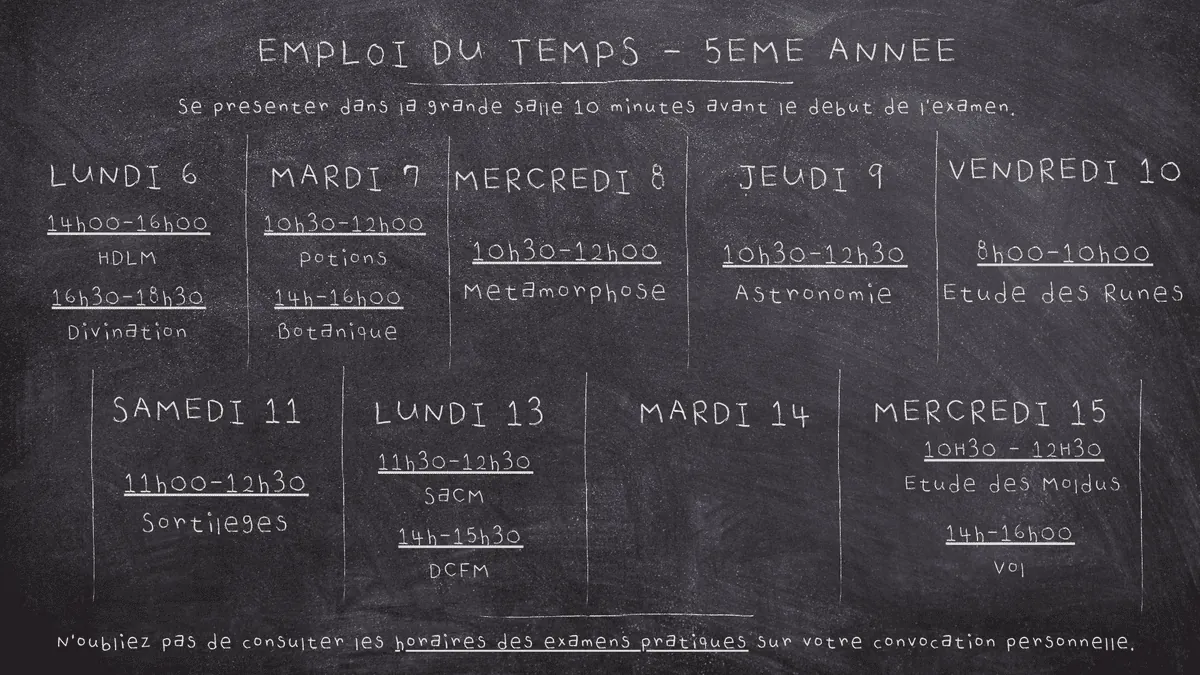 EMPLOI DU TEMPS - 5EME ANNEE
Se presenter dans la grande salle 10 minutes avant le debut de l'examen.
LUNDI 6
14h00-16h00
HDLM
16h30-18h30
Divination
MARDI 7
10h30-12h00
Potions
14h-16h00
Botanique
MERCREDI 8
10h30-12h00
Metamorphose
JEUDI 9
10h30-12h30
Astronomie
VENDREDI 10
8h00-10h00
Etude des Runes
SAMEDI 11
11h00-12h30
Sortileges
LUNDI 13
11h30-12h30
SaCM
14h-15h30
DCFM
MARDI 14
MERCREDI 15
10H30 - 12H30
Etude des Moldus
14h-16h00
Vol
N'oubliez pas de consulter les horaires des examens pratiques sur votre convocation personnelle.